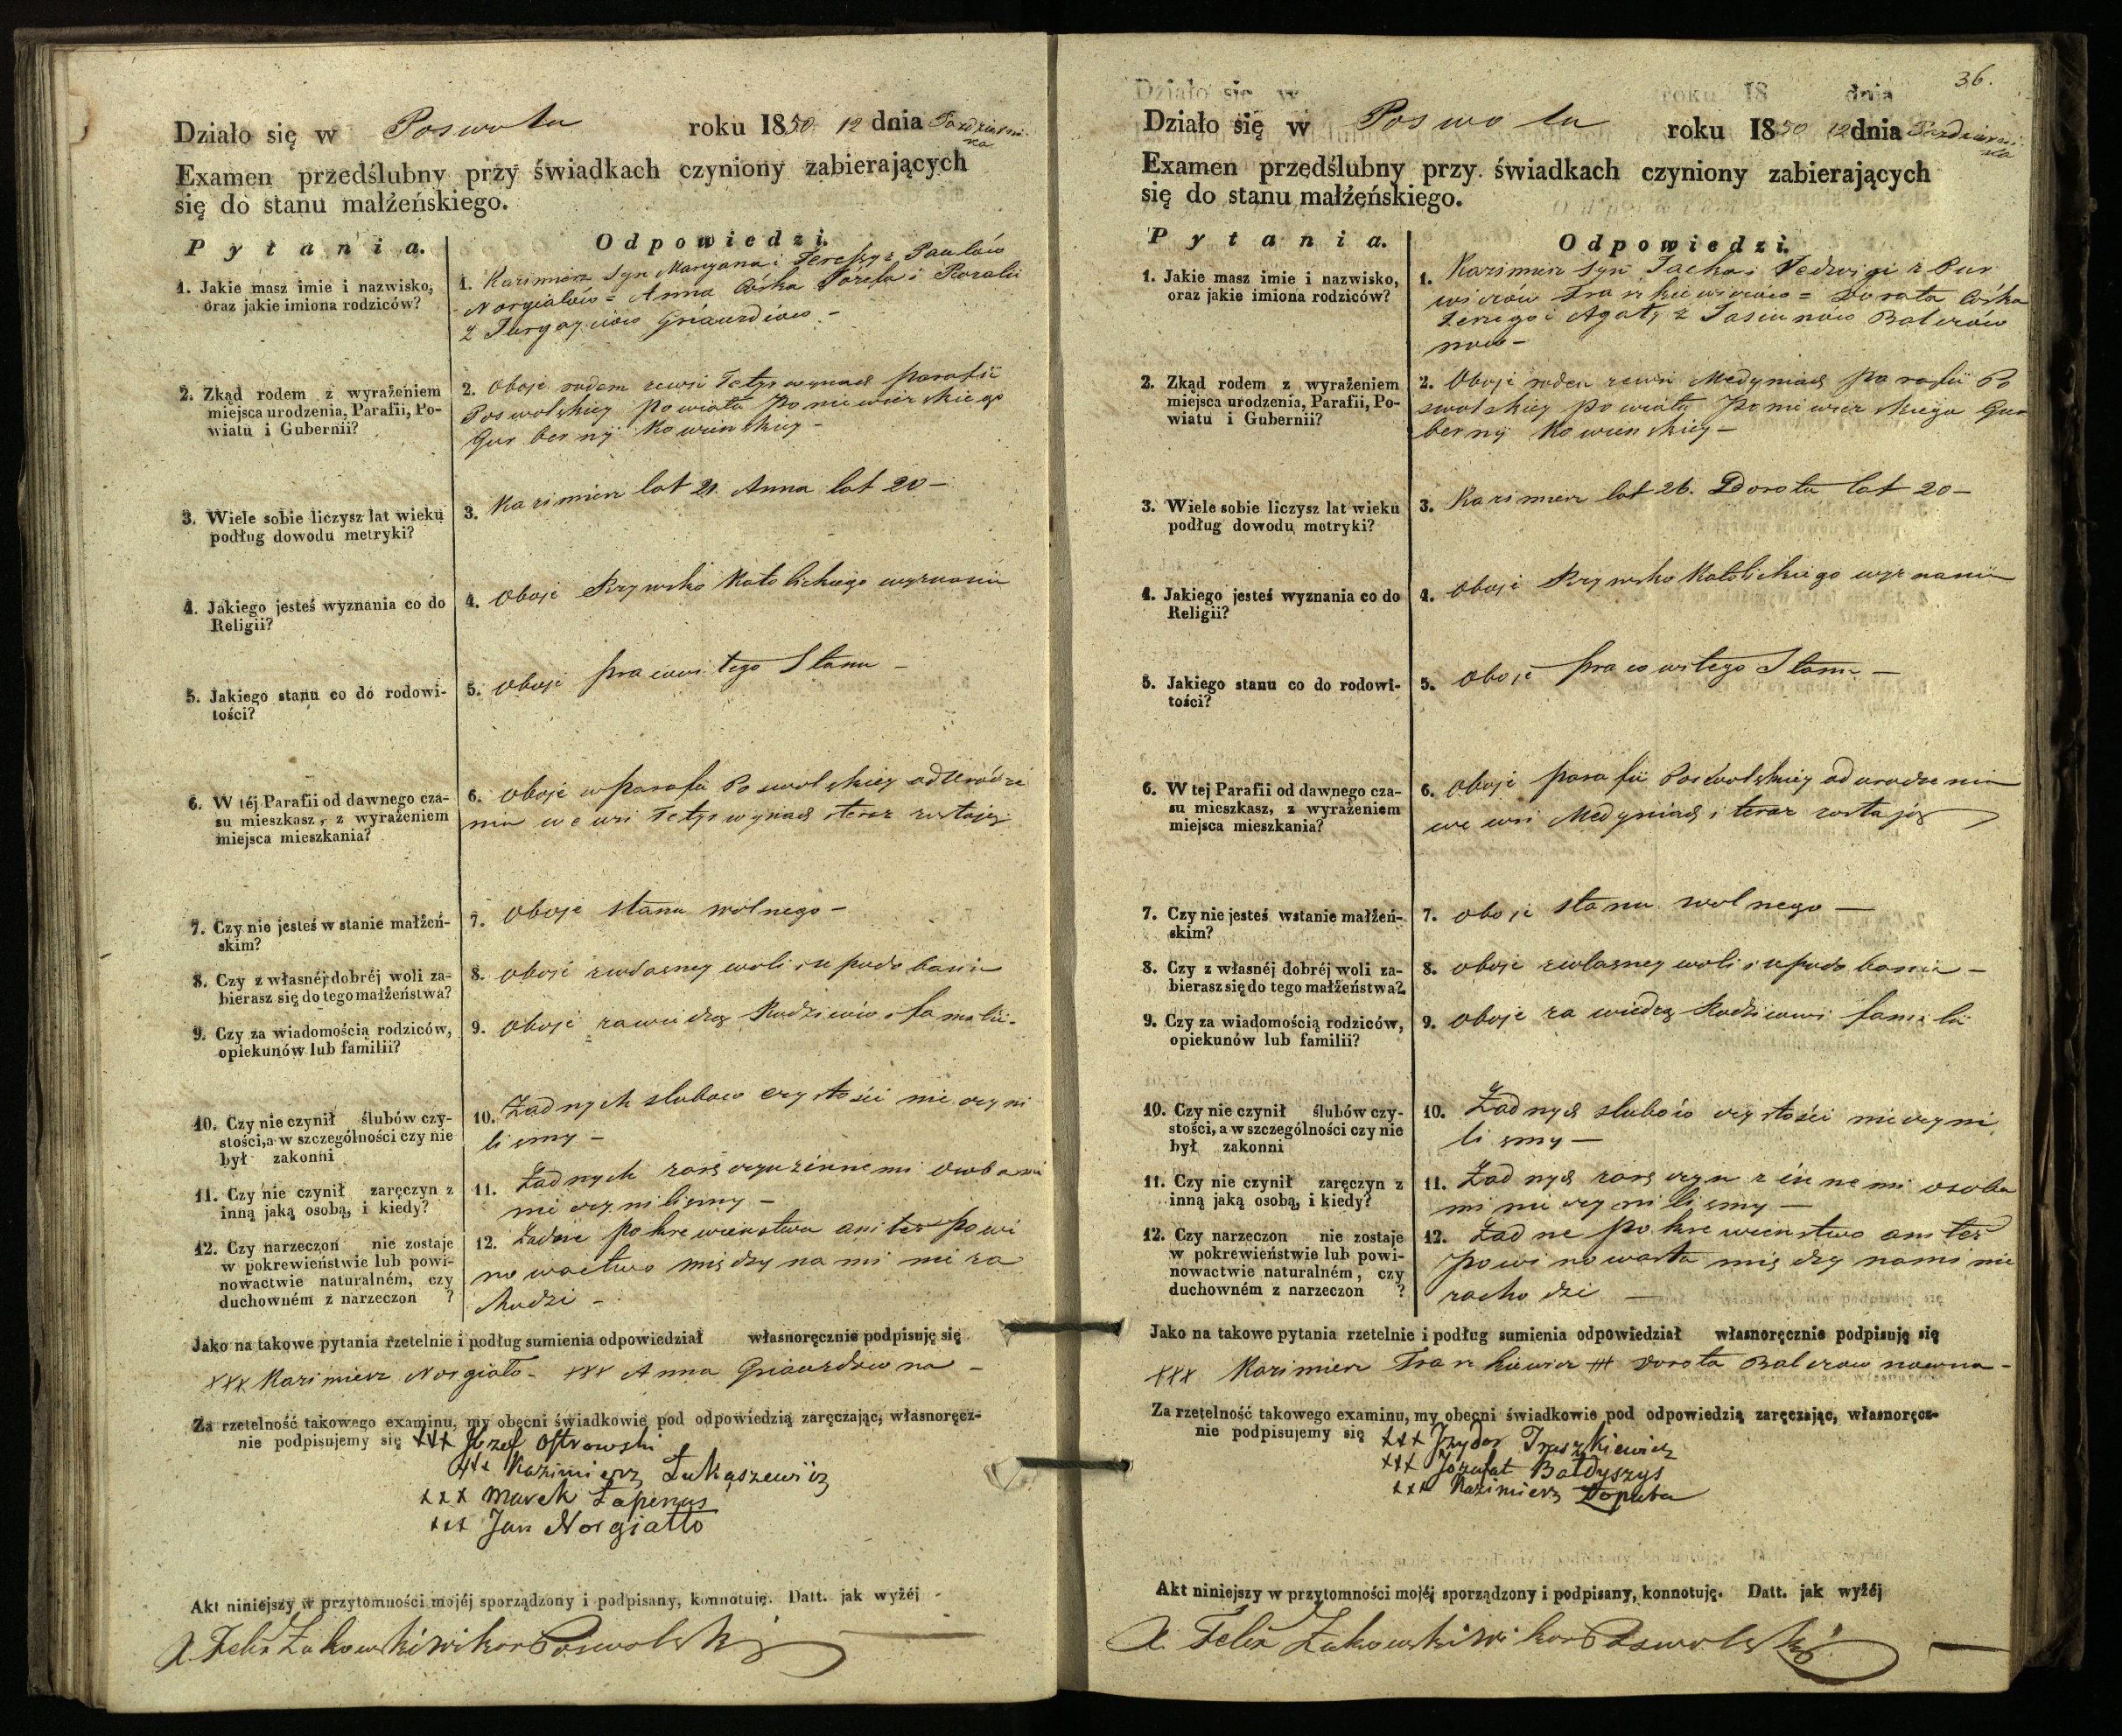 Działo się w Poswolu roku 1850 12 dnia Pazdziernika
Examen przedślubny przy świadkach czyniony zabierających
się do stanu małżeńskiego.
Pytania.
Odpowiedzi.
1. Jakie masz imie i nazwisko,
oraz jakie imiona rodziców?
1. Kazimierz Syn Maryana i Teressy z Paulów
Norgiałów = Anna Córka Józefa i Rozalii
z Gnauzdów -
2. Zkąd rodem z wyrażeniem
miejsca urodzenia, Parafii, Po-
wiatu i Gubernii?
2. Oboje rodem zewsi Tetyrwynach parafii
Poswolskiey powiatu Poniewiezskiego
Gubernij Kowienskiey -
3. Wiele sobie liczysz lat wieku
podług dowodu metryki?
3. Kazimierz lat 21. Anna lat 20 -
4. Jakiego jesteś wyznania co do
Religii?
4. Oboje Rzymsko Katolickiego wyznania
5. Jakiego stanu co do rodowi-
tości?
5. Oboje pracowitego Stanu -
6. W téj Parafii od dawnego cza-
su mieszkasz, z wyrażeniem
miejsca mieszkania?
6. Oboje w parafii Poswolskiey od urodze
nia we wsi Tetyrwynach i teraz zostajęę
7. Czy nie jesteś w stanie małżeń-
skim?
7. Oboje stanu wolnego -
8. Czy z własnéj dobréj woli za-
bierasz się do tego małżeństwa?
8. Oboje zwłasney woli i upodobania
9. Czy za wiadomością rodziców,
opiekunów lub familii?
9. Oboje zawiedzą Rodziców i familii -
10. Czy nie czynił ślubów czy-
stości, a w szczególności czy nie
był zakonni
10. Żadnych slubow czystości nie czyni
lismy -
11. Czy nie czynił zaręczyn z
inną jaką osobą, i kiedy?
11. Żadnych zaręczyn zinnemi osobami
nie czynilismy -
12. Czy narzeczon nie zostaje
w pokrewieństwie lub powi-
nowactwie naturalném, czy
duchowném z narzeczon ?
12. Żadne pokrewienstwo ani też powi
nowactwo między nami nie za
chodzi -
Jako na takowe pytania rzetelnie i podług sumienia odpowiedział własnoręcznie podpisuję się
xxx Kazimierz Norgiało - xxx Anna Gnauzdowna -
Za rzetelność takowego examinu, my obecni świadkowie pod odpowiedzią zaręczając, własnoręcz-
nie podpisujemy się xxx Józef Ostrowski
xxx Kazimierz Łukaszewicz
xxx Marek Łapenas
xxx Jan Norgiałło
Akt niniejszy w przytomności mojéj sporządzony i podpisany, konnotuję. Datt. jak wyżéj
X. Felix Żukowski Wikar Poswolski
36.
Działo się w Poswolu roku 1850 12 dnia Pazdziernika
Examen przedślubny przy świadkach czyniony zabierających
się do stanu małżeńskiego.
Pytania.
Odpowiedzi.
1. Jakie masz imie i nazwisko,
oraz jakie imiona rodziców?
1. Kazimierz Syn Jacka i Jedwigi z Pur
wiczów = Dorota Córka
Jerzego i Agaty z Jasiunów Balczów
now -
2. Zkąd rodem z wyrażeniem
miejsca urodzenia, Parafii, Po-
wiatu i Gubernii?
2. Oboje rodem zewsi Medyniach parafii Po
swolskiey powiatu Poniewiezskiego Gu
bernij Kowienskiey -
3. Wiele sobie liczysz lat wieku
podług dowodu metryki?
3. Kazimierz lat 26. Dorota lat 20 -
4. Jakiego jesteś wyznania co do
Religii?
4. Oboje Rzymsko Katolickiego wyznania
5. Jakiego stanu co do rodowi-
tości?
5. Oboje pracowitego Stanu -
6. W tej Parafii od dawnego cza-
su mieszkasz, z wyrażeniem
miejsca mieszkania?
6. Oboje parafii Poswolskiey od urodzenia
we wsi Medyniach i teraz zostają
7. Czy nie jesteś wstanie małżeń-
skim?
7. Oboje stanu wolnego -
8. Czy z własnéj dobréj woli za-
bierasz się do tego małżeństwa?
8. Oboje zwłasney woli i upodobania -
9. Czy za wiadomością rodziców,
opiekunów lub familii?
9. Oboje za wiedzą Rodziców i familii
10. Czy nie czynił ślubów czy-
stości, a w szczególności czy nie
był zakonni
10. Żadnych slubów czystości nieczyni
lismy -
11. Czy nie czynił zaręczyn z
inną jaką osobą, i kiedy?
11. Żadnych zaręczyn zinnemi osoba
mi nie czynilismy -
12. Czy narzeczon nie zostaje
w pokrewieństwie lub powi-
nowactwie naturalném, czy
duchowném z narzeczon ?
12. Żadne pokrewienstwo ani też
powinowactwa między nami nie
zachodzi -
Jako na takowe pytania rzetelnie i podług sumienia odpowiedział własnoręcznie podpisuję się
xxx Kazimierz xxx Dorota Balczownowna -
Za rzetelność takowego examinu, my obecni świadkowie pod odpowiedzią zaręczając, własnoręcz-
nie podpisujemy się xxx Jzydor Traszkiewicz
xxx Józafat Bałdyszys
xxx Kazimierz Łoputa
Akt niniejszy w przytomności mojéj sporządzony i podpisany, konnotuję. Datt. jak wyżéj
X. Felix Żukowski Wikar Poswolski